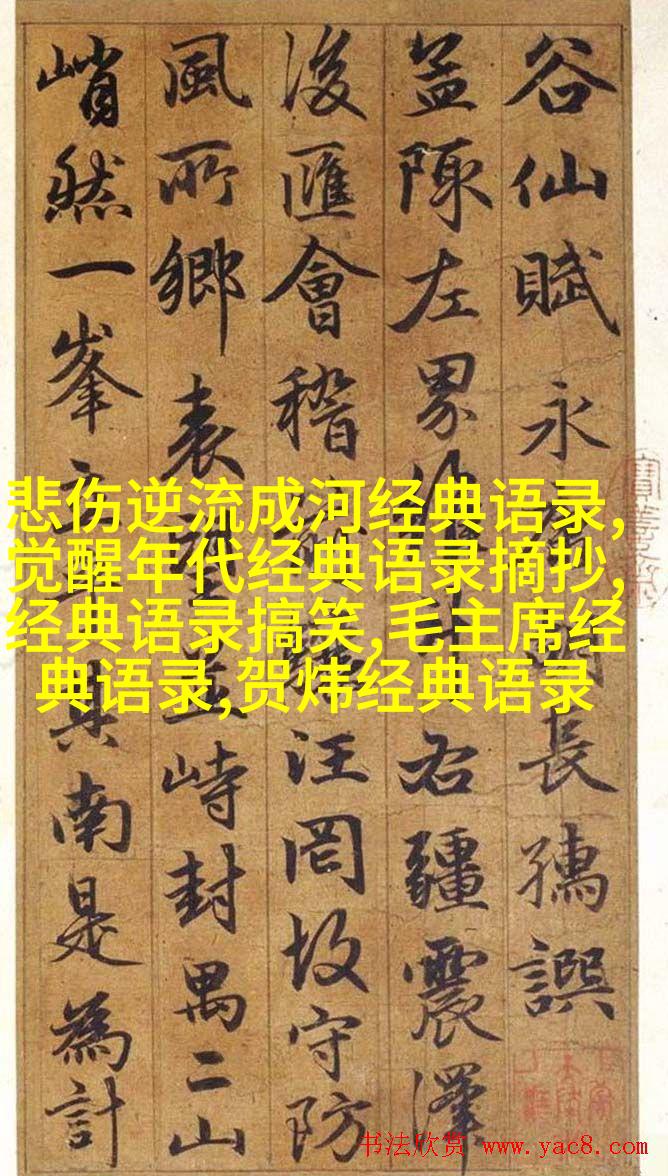 谷仙賦永長孺譔
左界右疆震澤
後匯會稽汪罔故守防
風所鄉表峙封禺二山
峭然一峯南是為計
悲伤逆流成河经典语录,
觉醒年代经典语录摘抄,
经典语录搞笑,毛主席经
典语录,贺炜经典语录
书法欣赏 www.yac8.com